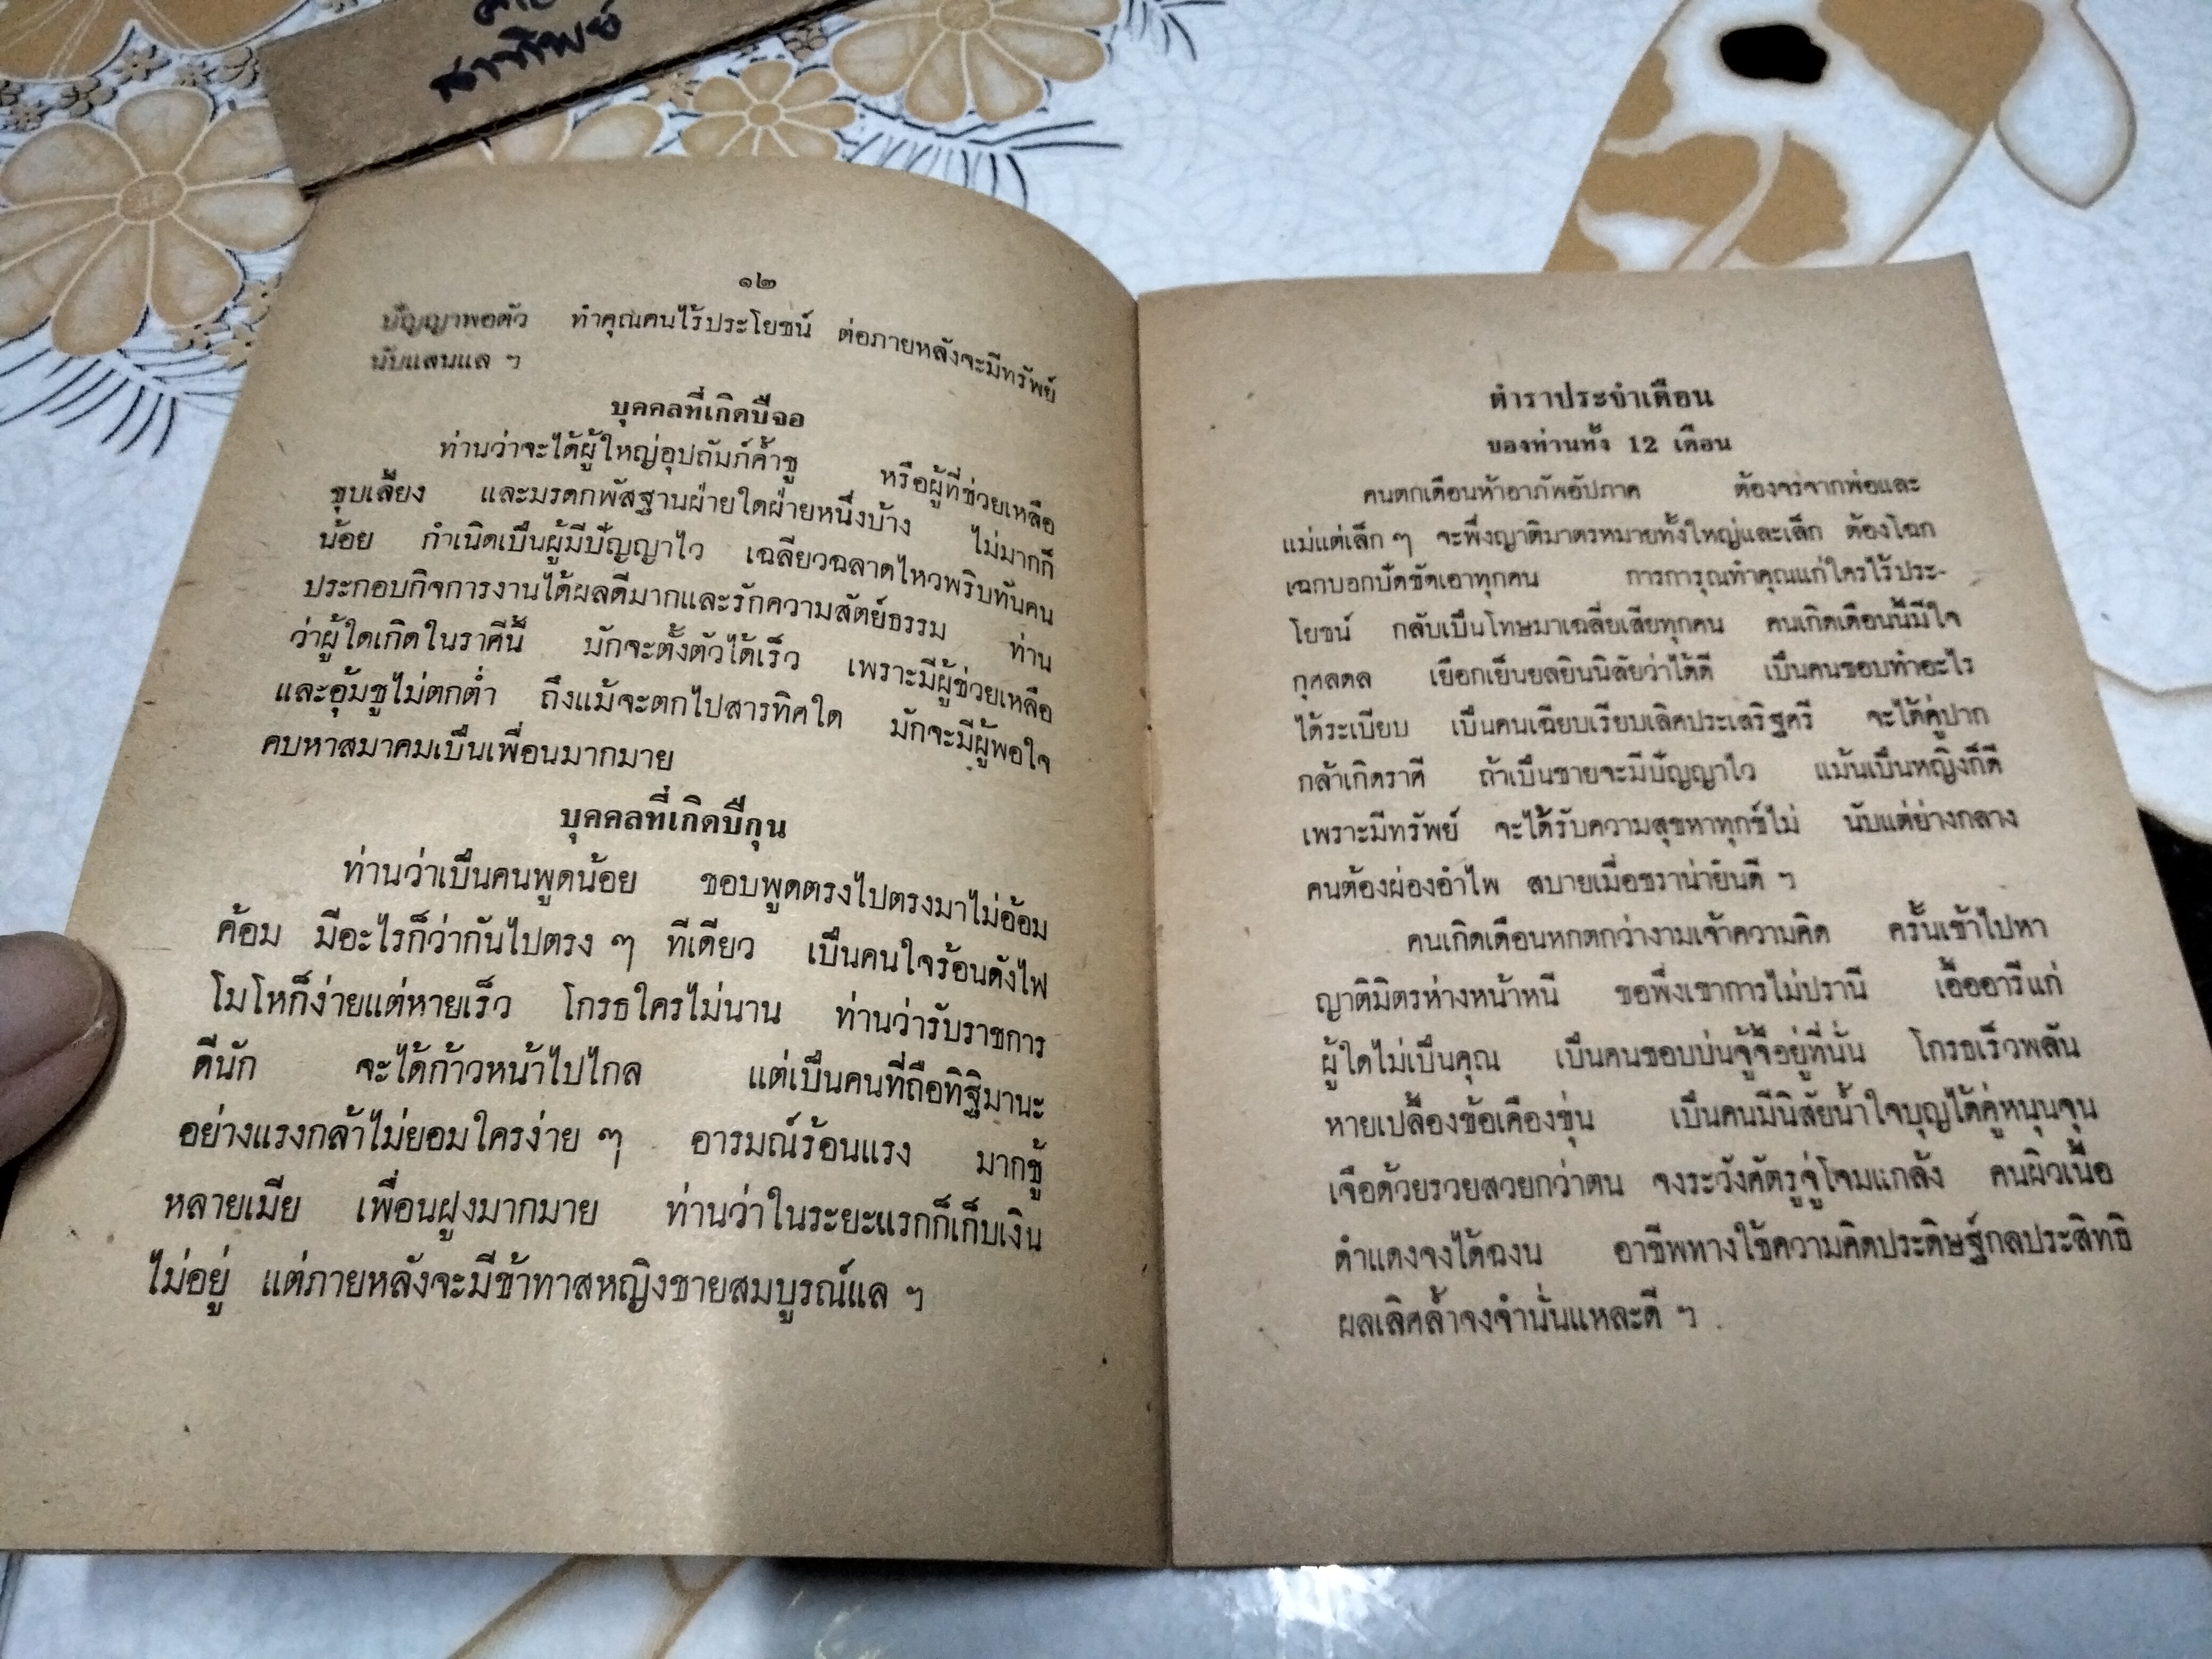 สาทิพย์
๑๒
ปัญญาพอตัว ทำคุณคนไร้ประโยชน์ ต่อภายหลังจะมีทรัพย์
นับแสนแล ฯ
บุคคลที่เกิดปีจอ
ท่านว่าจะได้ผู้ใหญ่อุปถัมภ์ค้ำชู หรือผู้ที่ช่วยเหลือ
ชุบเลี้ยง และมรดกพัสฐานฝ่ายใดฝ่ายหนึ่งบ้าง ไม่มากก็
น้อย กำเนิดเป็นผู้มีปัญญาไว เฉลียวฉลาดไหวพริบทันคน
ประกอบกิจการงานได้ผลดีมากและรักความสัตย์ธรรม ท่าน
ว่าผู้ใดเกิดในราศีนี้ มักจะตั้งตัวได้เร็ว เพราะมีผู้ช่วยเหลือ
และอุ้มชูไม่ตกต่ำ ถึงแม้จะตกไปสารทิศใด มักจะมีผู้พอใจ
คบหาสมาคมเป็นเพื่อนมากมาย
บุคคลที่เกิดปีกุน
ท่านว่าเป็นคนพูดน้อย ชอบพูดตรงไปตรงมาไม่อ้อม
ค้อม มีอะไรก็ว่ากันไปตรง ๆ ทีเดียว เป็นคนใจร้อนดังไฟ
โมโหก็ง่ายแต่หายเร็ว โกรธใครไม่นาน ท่านว่ารับราชการ
ดีนัก จะได้ก้าวหน้าไปไกล แต่เป็นคนที่ถือทิฐิมานะ
อย่างแรงกล้าไม่ยอมใครง่าย ๆ อารมณ์ร้อนแรง มากชู้
หลายเมีย เพื่อนฝูงมากมาย ท่านว่าในระยะแรกก็เก็บเงิน
ไม่อยู่ แต่ภายหลังจะมีข้าทาสหญิงชายสมบูรณ์แล ฯ
ตำราประจำเดือน
ของท่านทั้ง 12 เดือน
คนตกเดือนห้าอาภัพอัปภาค ต้องจรจากพ่อและ
แม่แต่เล็ก ๆ จะพึ่งญาติมาตรหมายทั้งใหญ่และเล็ก ต้องโฉก
เฉกบอกปัดขัดเอาทุกคน การการุณทำคุณแก่ใครไร้ประ-
โยชน์ กลับเป็นโทษมาเฉลี่ยเสียทุกคน คนเกิดเดือนนี้มีใจ
กุศลดล เยือกเย็นยลยินนิสัยว่าได้ดี เป็นคนชอบทำอะไร
ได้ระเบียบ เป็นคนเฉียบเรียบเลิศประเสริฐศรี จะได้คู่ปาก
กล้าเกิดราศี ถ้าเป็นชายจะมีปัญญาไว แม้นเป็นหญิงก็ดี
เพราะมีทรัพย์ จะได้รับความสุขหาทุกข์ไม่ นับแต่ย่างกลาง
คนต้องผ่องอำไพ สบายเมื่อชราน่ายินดี ฯ
คนเกิดเดือนหกตกว่างามเจ้าความคิด ครั้นเข้าไปหา
ญาติมิตรห่างหน้าหนี ขอพึ่งเขาการไม่ปรานี เอื้ออารีแก่
ผู้ใดไม่เป็นคุณ เป็นคนชอบบ่นจู้จี้อยู่ที่นั่น โกรธเร็วพลัน
หายเปลื้องข้อเคืองขุ่น เป็นคนมีนิสัยน้ำใจบุญได้คู่หนุนจุน
เจือด้วยรวยสวยกว่าตน จงระวังศัตรูจู่โจมแกล้ง คนผิวเนื้อ
ดำแดงจงได้ฉงน อาชีพทางใช้ความคิดประดิษฐ์กลประสิทธิ
ผลเลิศล้ำจงจำนั่นแหละดี ฯ